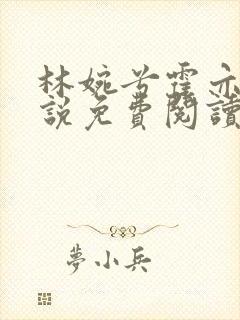 林婉兮霍亦
說免費閱讀
夢小兵